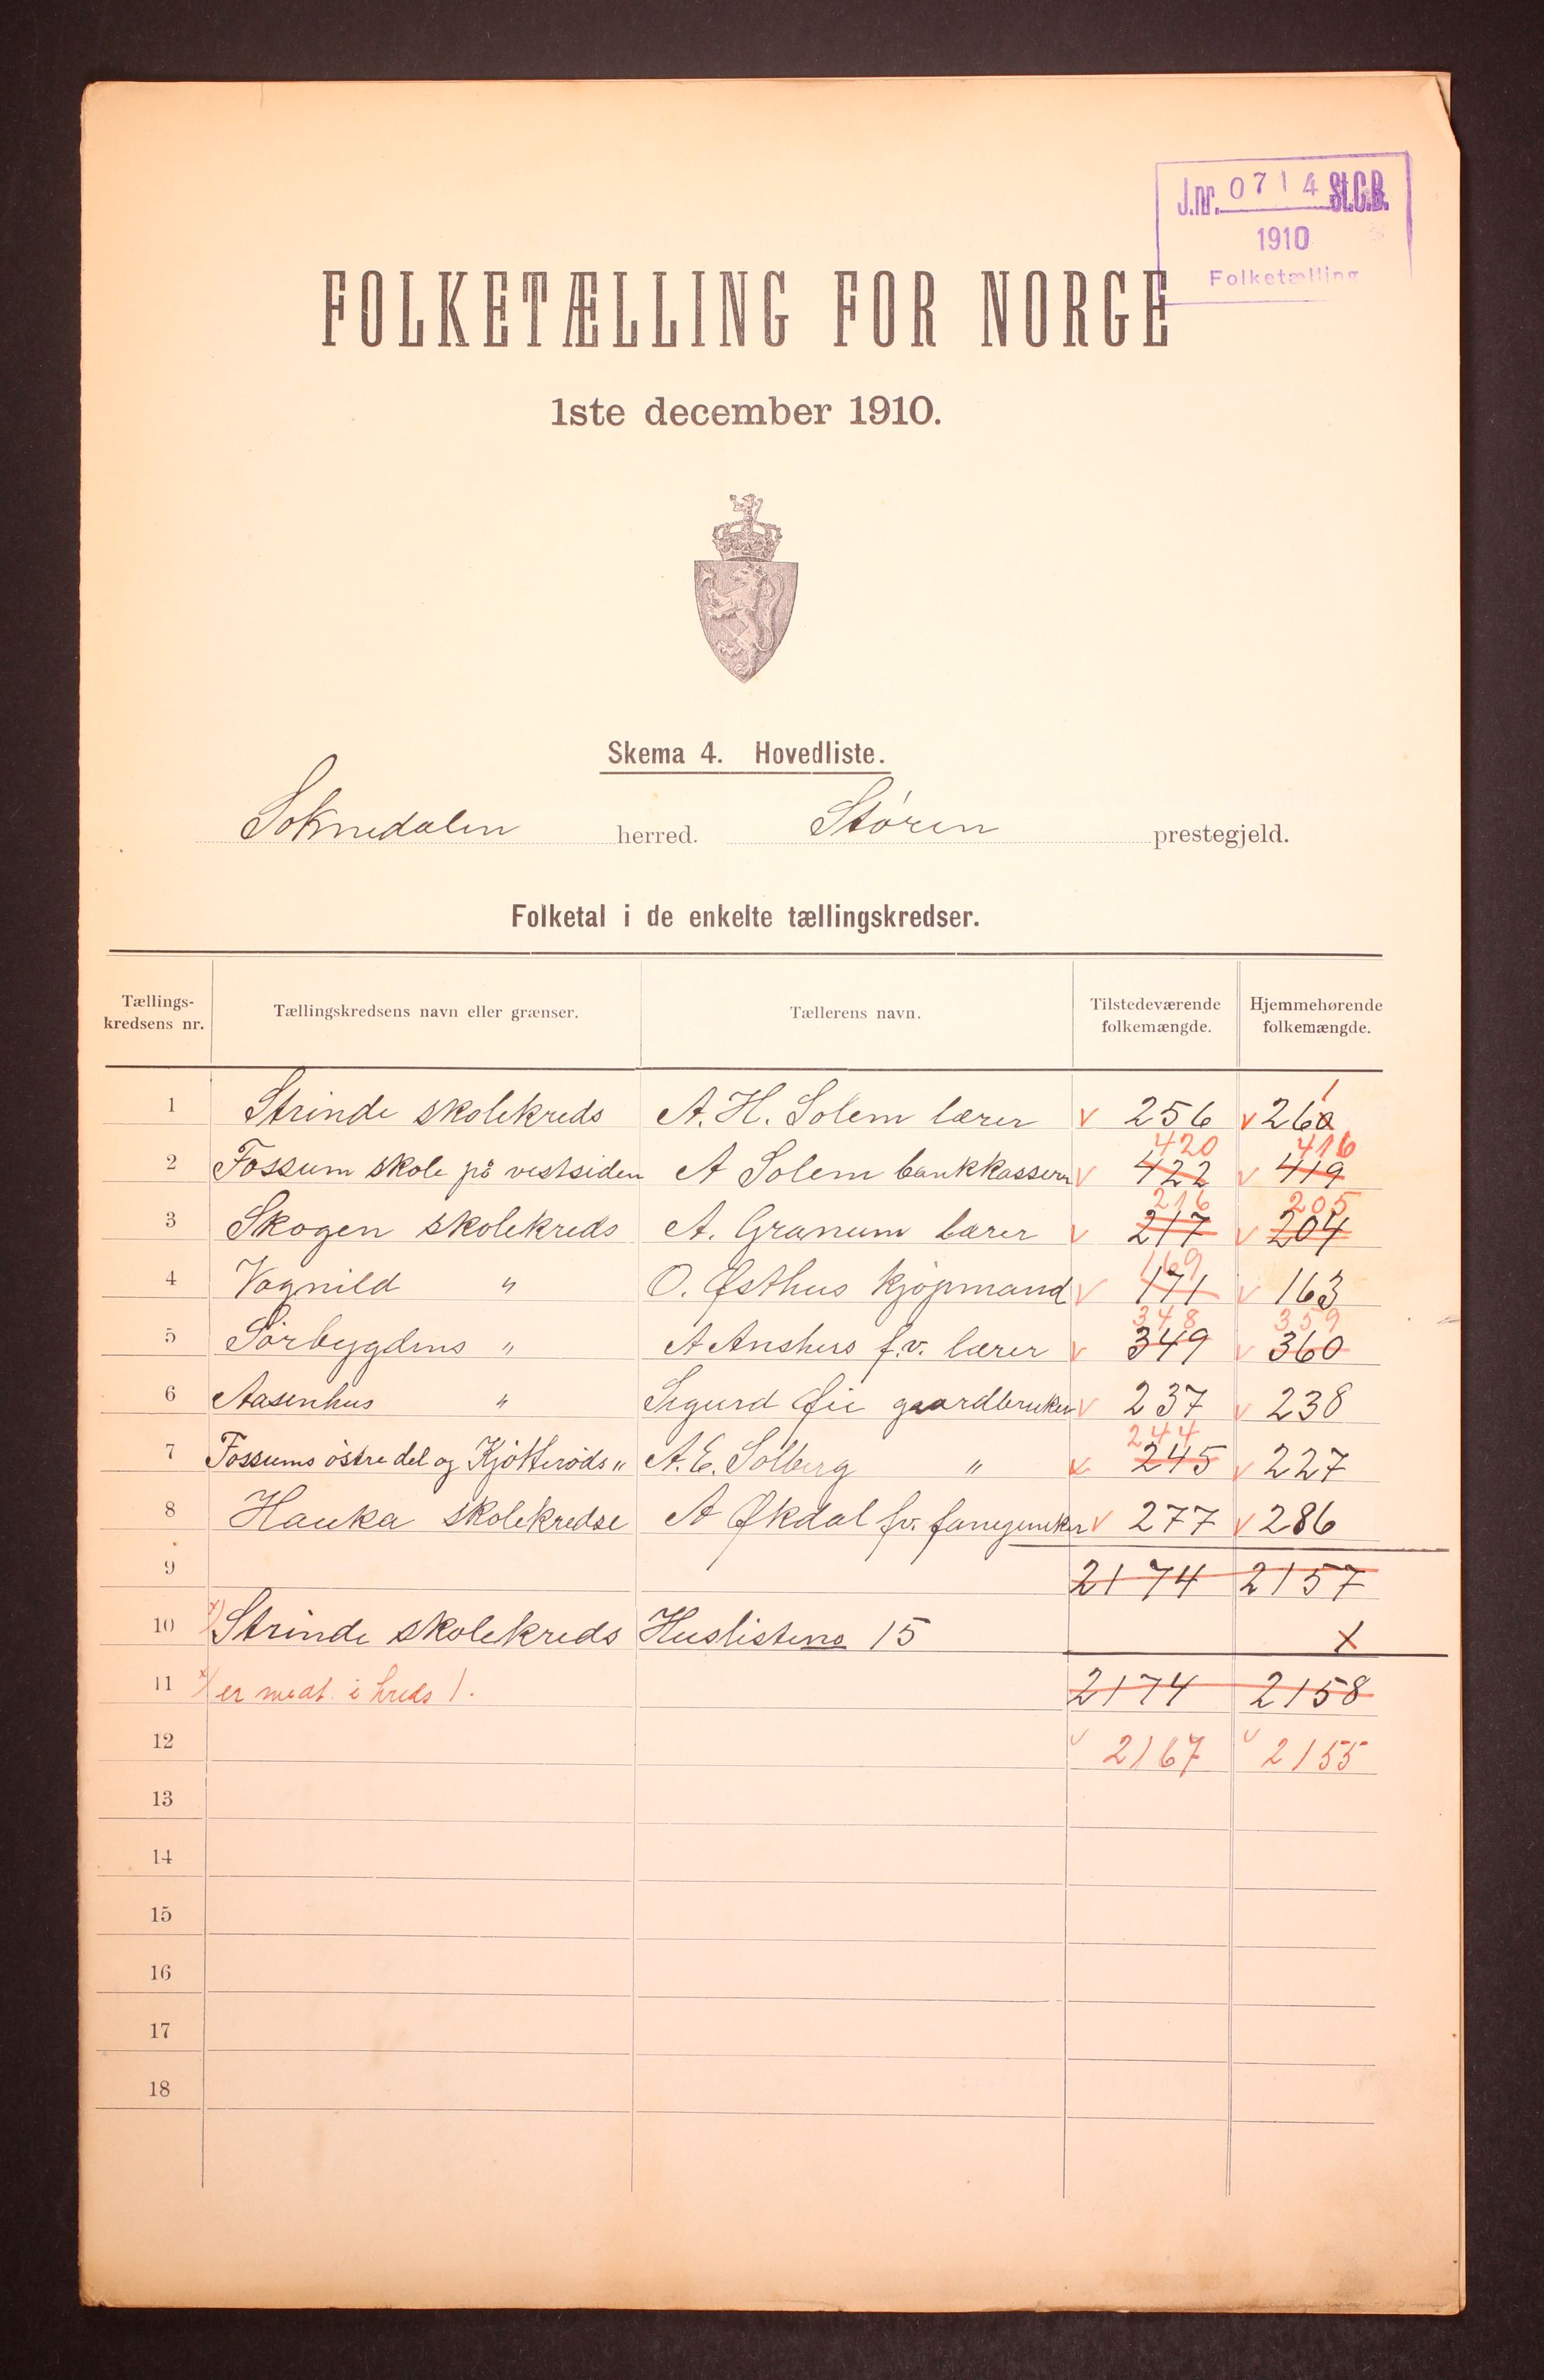 J.nr. 0714 St.C.B.
1910
Folketælling
FOLKETÆLLING FOR NORGE
1ste december 1910.
Skema 4. Hovedliste.
Soknedalen herred. Støren prestegjeld.
Folketal i de enkelte tællingskredser.
Tællings-kredsens nr. Tællingskredsens navn eller grænser. Tællerens navn. Tilstedeværende folkemængde. Hjemmehørende folkemængde.
1
1 Strinde skolekreds A. H. Solem lærer v 256 v 260
420 416
2 Fossum skole på vestsiden A Solem bankkasserer v 422 v 419
216 205
3 Skogen skolekreds A. Granum lærer v 217 v 204
169
4 Vognild " O. Østhus kjøpmand v 171 v 163
348 359
5 Sørbygdens " A Anshus f.v. lærer v 349 v 360
6 Aasenhus " Sigurd Øie gaardbruker v 237 v 238
244
7 Fossums østre del og Kjøtterøds " A. E. Solberg " v 245 v 227
8 Hauka skolekredse A Økdal fv. v 277 v 286
9 2174 2157
10 x) Strinde skolekreds Huslistens 15 1
11 x) er medt. i kreds 1. 2174 2158
12 v 2167 v 2155
13
14
15
16
17
18